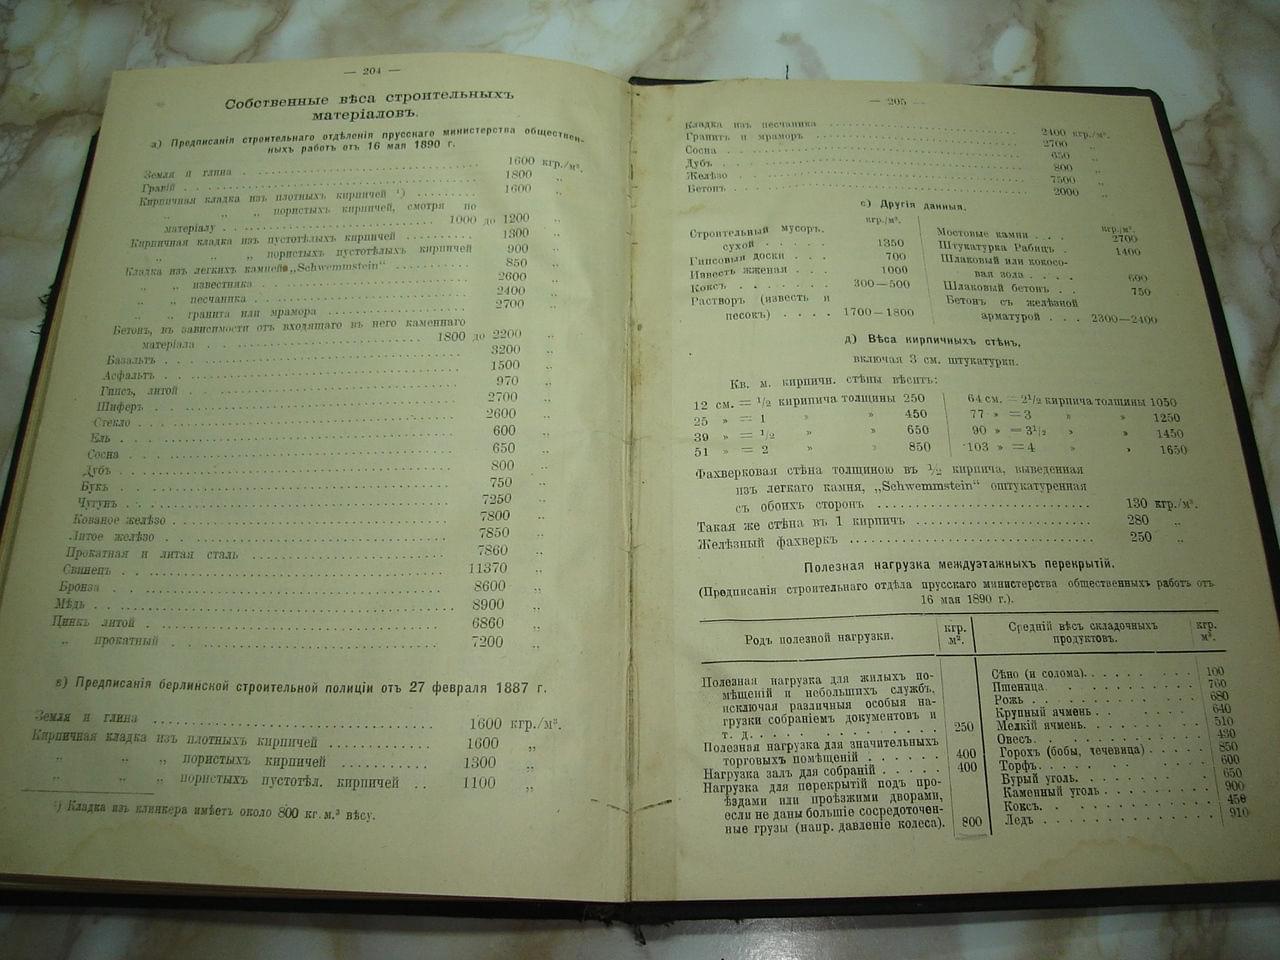 — 204 —
Собственные вѣса строительныхъ
матеріаловъ.
а) Предписанія строительнаго отдѣленія прусскаго министерства обществен-
ныхъ работъ отъ 16 мая 1890 г.
Земля и глина . . . 1600 кгр./м³.
Гравій . . . 1800 „
Кирпичная кладка изъ плотныхъ кирпичей ¹) . . . 1600 „
„ „ „ пористыхъ кирпичей, смотря по
матеріалу . . . 1000 до 1200 „
Кирпичная кладка изъ пустотѣлыхъ кирпичей . . . 1300 „
„ „ „ пористыхъ пустотѣлыхъ кирпичей 900 „
Кладка изъ легкихъ камней „Schwemmstein“ . . . 850 „
„ „ известняка . . . 2600 „
„ „ песчаника . . . 2400 „
„ „ гранита или мрамора . . . 2700 „
Бетонъ, въ зависимости отъ входящаго въ него каменнаго
матеріала . . . 1800 до 2200 „
Базальтъ . . . 3200 „
Асфальтъ . . . 1500 „
Гипсъ, литой . . . 970 „
Шиферъ . . . 2700 „
Стекло . . . 2600 „
Ель . . . 600 „
Сосна . . . 650 „
Дубъ . . . 800 „
Букъ . . . 750 „
Чугунъ . . . 7250 „
Кованое желѣзо . . . 7800 „
Литое желѣзо . . . 7850 „
Прокатная и литая сталь . . . 7860 „
Свинецъ . . . 11370 „
Бронза . . . 8600 „
Мѣдь . . . 8900 „
Цинкъ литой . . . 6860 „
„ прокатный . . . 7200 „
в) Предписанія берлинской строительной полиціи отъ 27 февраля 1887 г.
Земля и глина . . . 1600 кгр./м³.
Кирпичная кладка изъ плотныхъ кирпичей . . . 1600 „
„ „ „ пористыхъ кирпичей . . . 1300 „
„ „ „ пористыхъ пустотѣл. кирпичей . . 1100 „
¹) Кладка изъ клинкера имѣетъ около 800 кг.м.³ вѣсу.
— 205 —
Кладка изъ песчаника . . . 2400 кгр./м³.
Гранитъ и мраморъ . . . 2700 „
Сосна . . . 650 „
Дубъ . . . 800 „
Желѣзо . . . 7500 „
Бетонъ . . . 2000 „
с) Другія данныя.
кгр./м³.
Строительный мусоръ,
сухой . . . . 1350
Гипсовыя доски . . . 700
Известь жженая . . . 1000
Коксъ . . . 300—500
Растворъ (известь и
песокъ) . . . . 1700—1800
кгр./м³.
Мостовые камни . . 2700
Штукатурка Рабицъ . . 1400
Шлаковый или кокосо-
вая зола . . . . 600
Шлаковый бетонъ . . 750
Бетонъ съ желѣзной
арматурой . . . 2300—2400
д) Вѣса кирпичныхъ стѣнъ,
включая 3 см. штукатурки.
Кв. м. кирпичн. стѣны вѣситъ:
12 см. = ¹/₂ кирпича толщины 250
25 „ = 1 „ „ 450
39 „ = ¹/₂ „ „ 650
51 „ = 2 „ „ 850
64 см. = 2¹/₂ кирпича толщины 1050
77 „ = 3 „ „ 1250
90 „ = 3¹/₂ „ „ 1450
103 „ = 4 „ „ 1650
Фахверковая стѣна толщиною въ ¹/₂ кирпича, выведенная
изъ легкаго камня, „Schwemmstein“ оштукатуренная
съ обоихъ сторонъ . . . 130 кгр./м³.
Такая же стѣна въ 1 кирпичъ . . . 280 „
Желѣзный фахверкъ . . . 250 „
Полезная нагрузка междуэтажныхъ перекрытій.
(Предписанія строительнаго отдѣла прусскаго министерства общественныхъ работъ отъ
16 мая 1890 г.).
Родъ полезной нагрузки. кгр. м².
Полезная нагрузка для жилыхъ по-
мѣщеній и небольшихъ службъ,
исключая различныя особыя на-
грузки собраніемъ документовъ и
т. д. . . . 250
Полезная нагрузка для значительныхъ
торговыхъ помѣщеній . . . . 400
Нагрузка залъ для собраній . . . 400
Нагрузка для перекрытій подъ про-
ѣздами или проѣзжими дворами,
если не даны большіе сосредоточен-
ные грузы (напр. давленіе колеса). 800
Средній вѣсъ складочныхъ
продуктовъ. кгр. м³.
Сѣно (и солома). . . . 100
Пшеница . . . 760
Рожь . . . 680
Крупный ячмень . . . 640
Мелкій ячмень. . . . 510
Овесъ . . . 430
Горохъ (бобы, чечевица) . . . 850
Торфъ. . . . 600
Бурый уголь. . . . 650
Каменный уголь . . . 900
Коксъ. . . . 450
Ледъ . . . 910